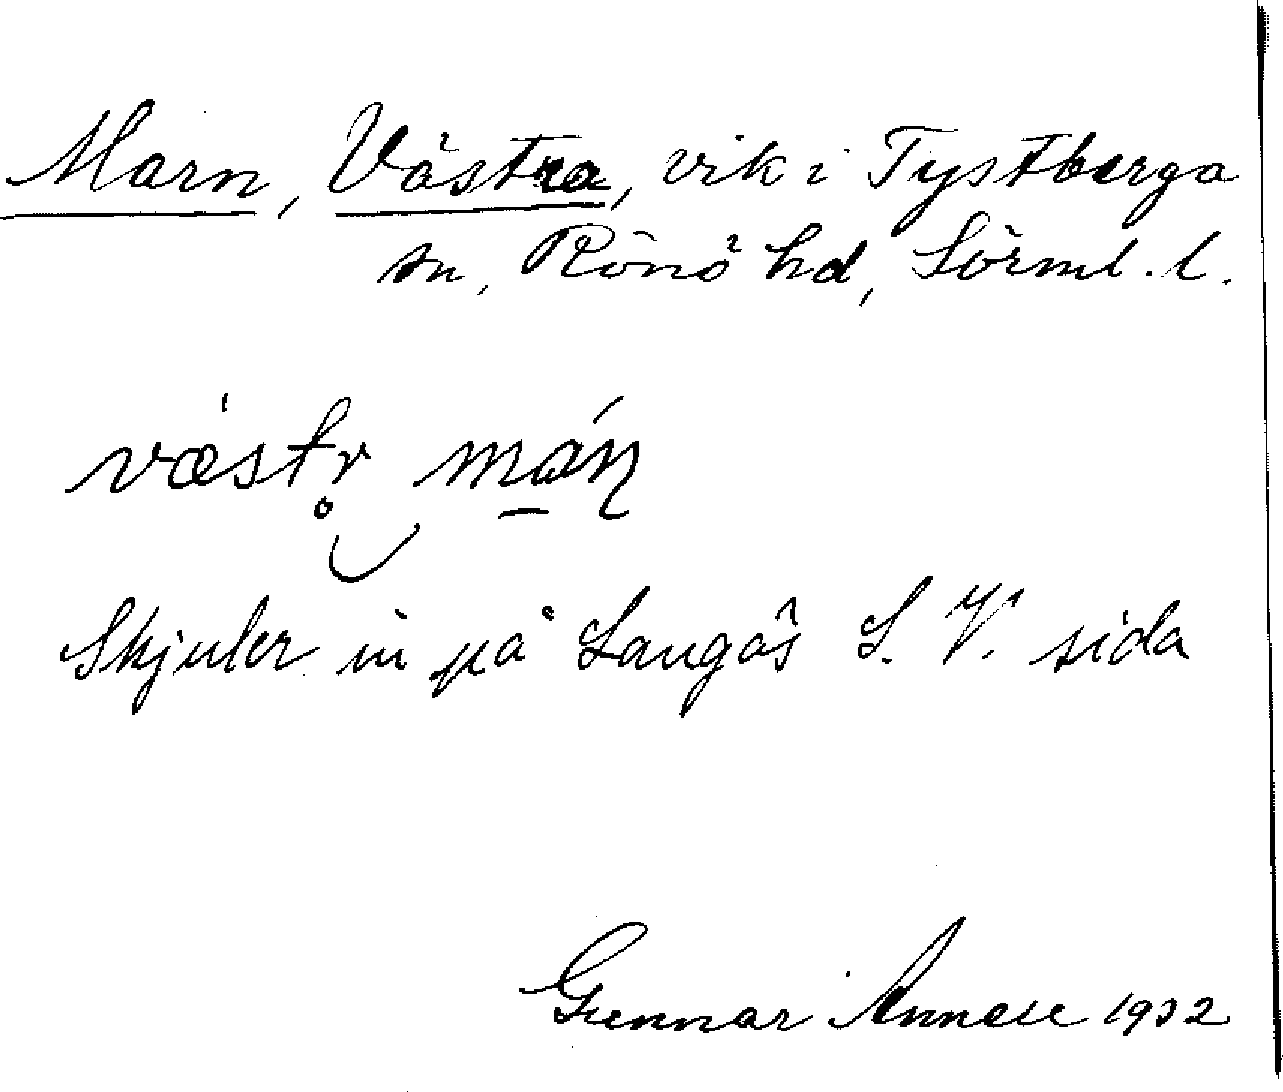 Marn, Västra, vik i Tystberga
sn, Rönö hd, Sörml. l.
væstr̥ mán
Skjuler in på Langös S. V. sida
Gunnar Annell 1932